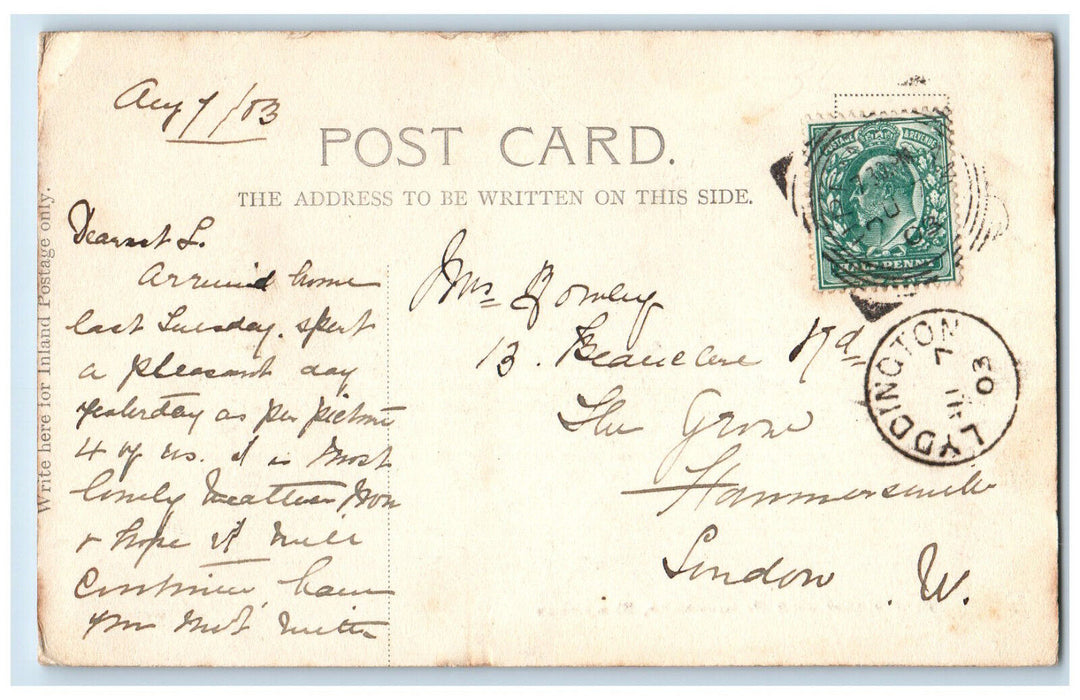 Aug 7/03
POST CARD.
THE ADDRESS TO BE WRITTEN ON THIS SIDE.
Write here for Inland Postage only.
Dearest L.
Arrived home
last Tuesday. spent
a pleasant day
yesterday as per picture
4 of us. it is most
lovely weather now
& hope it will
continue, have
you met with
Mrs
13. Beauclere Rd
The Grove
Hammersmith
London. W.
POSTAGE & REVENUE
HALFPENNY
LYDDINGTON
7
03